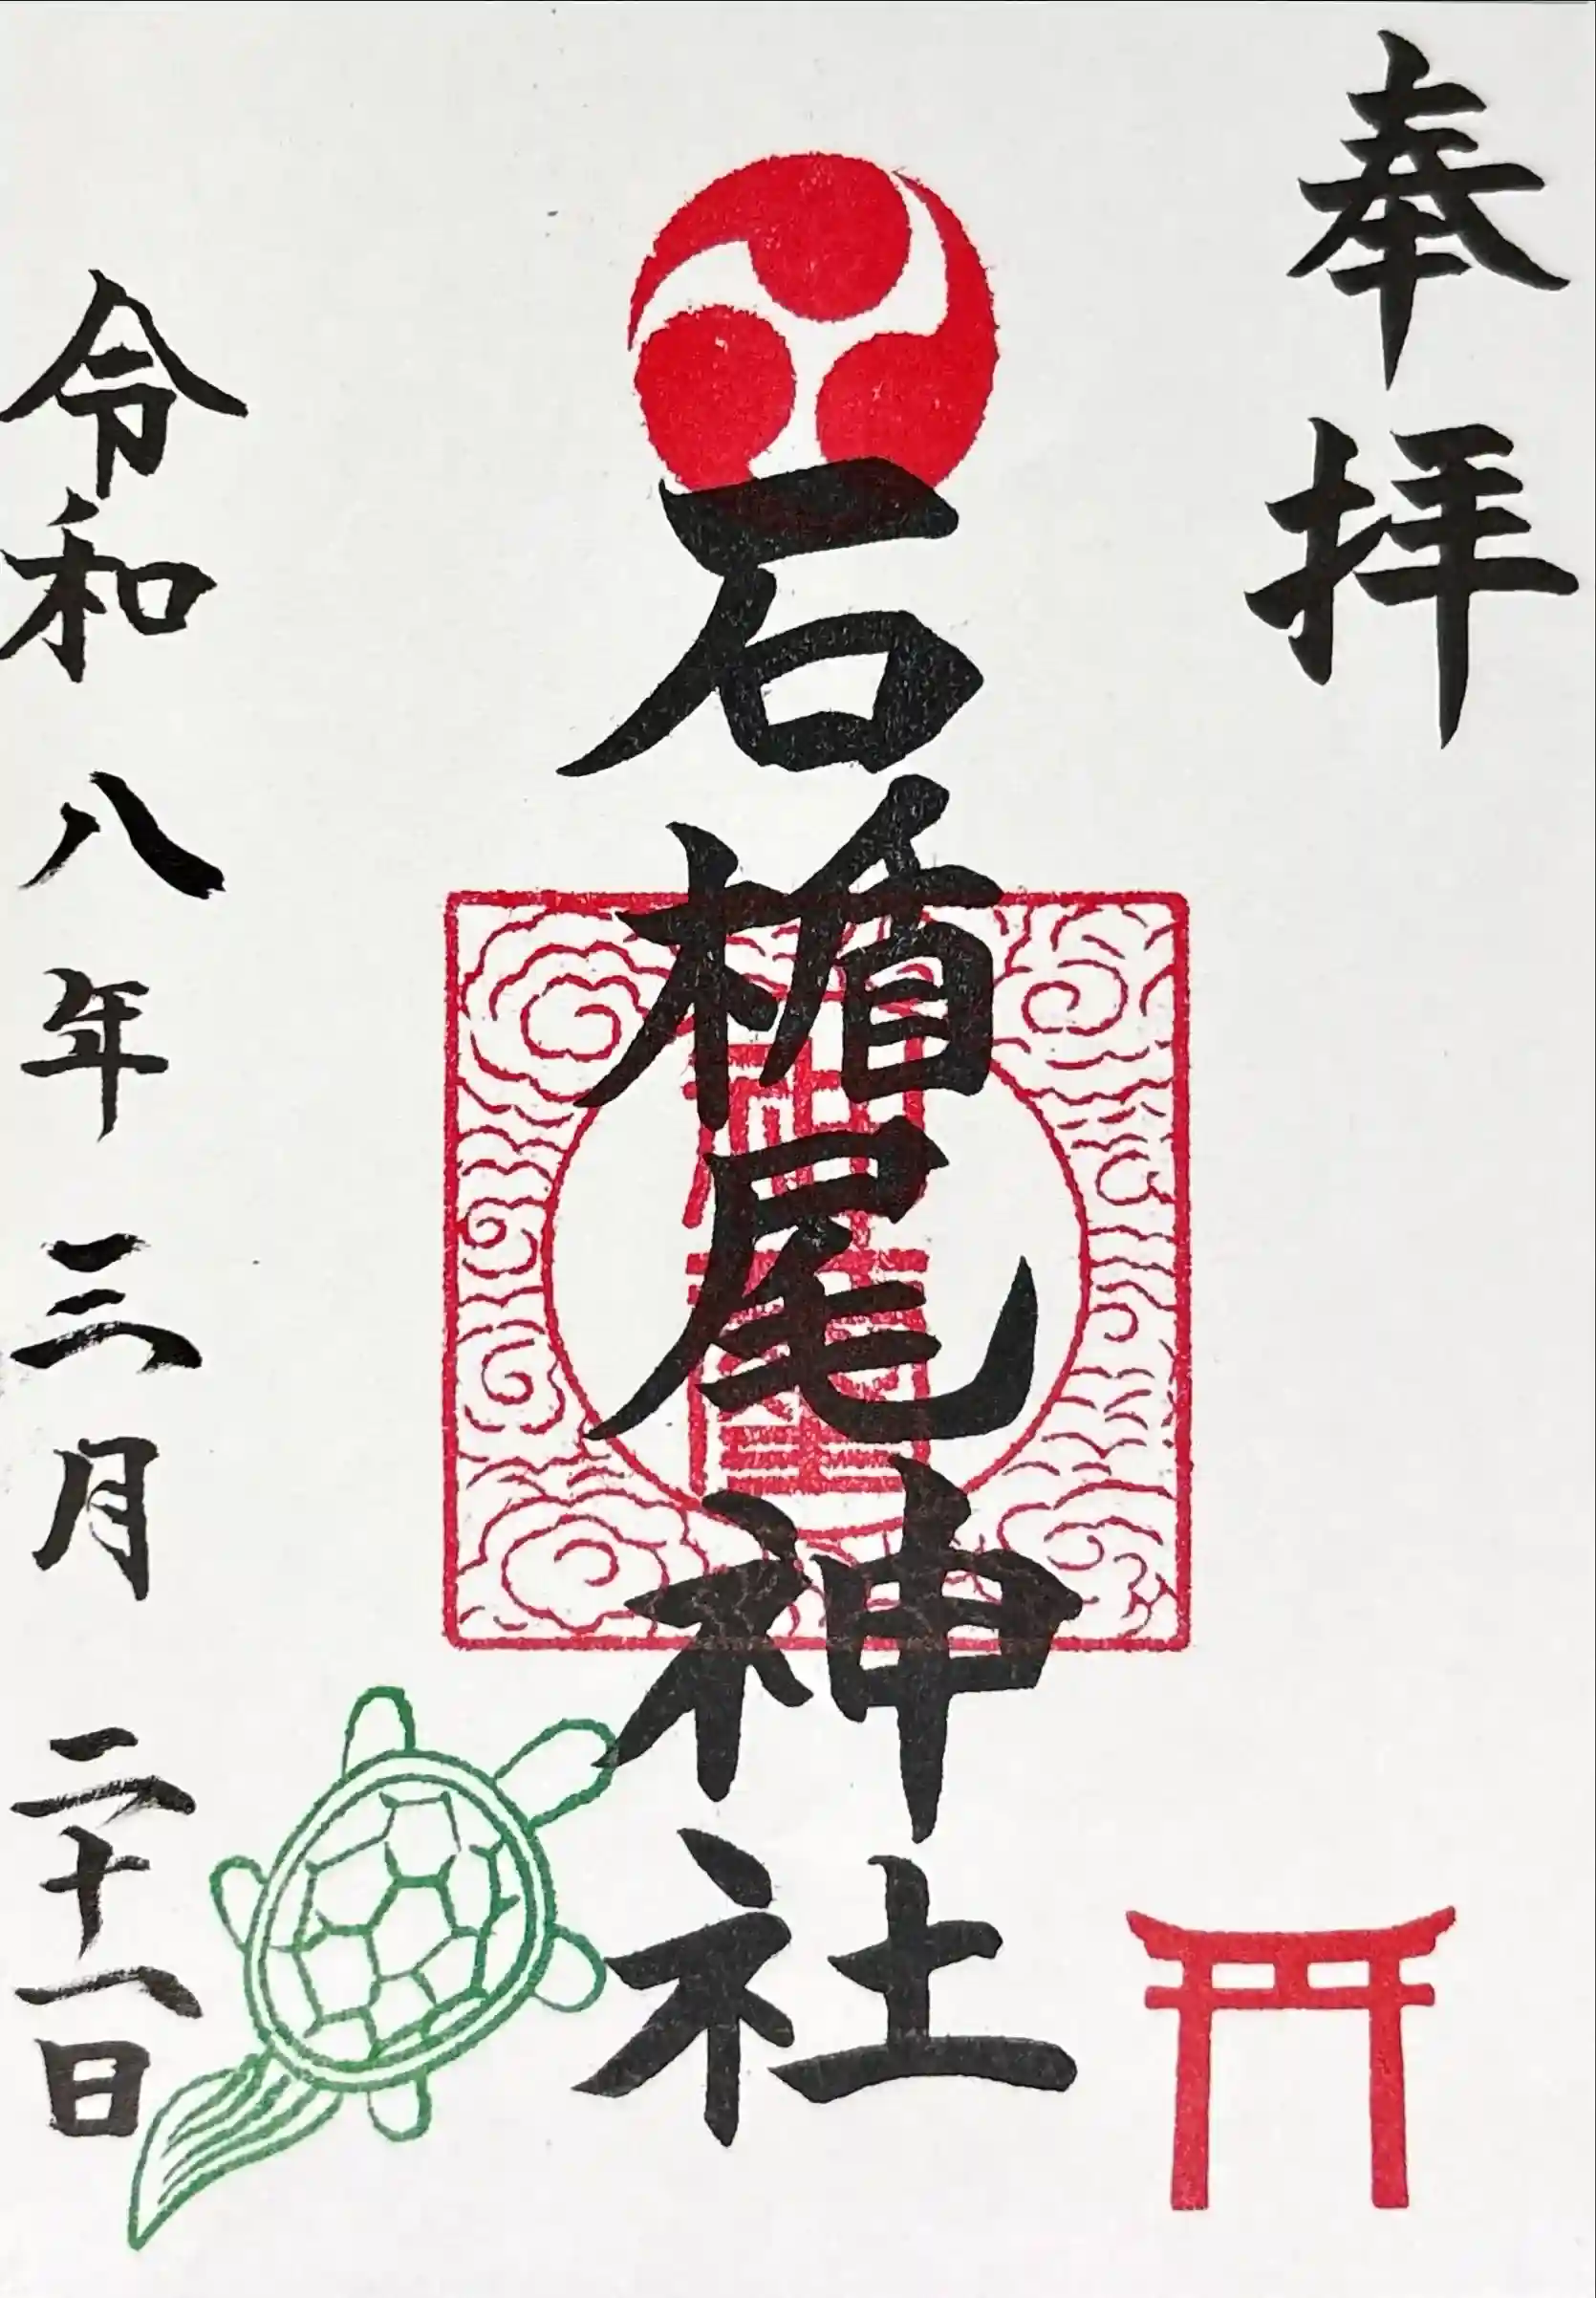 奉拝
石楯尾神社
令和八年三月二十一日